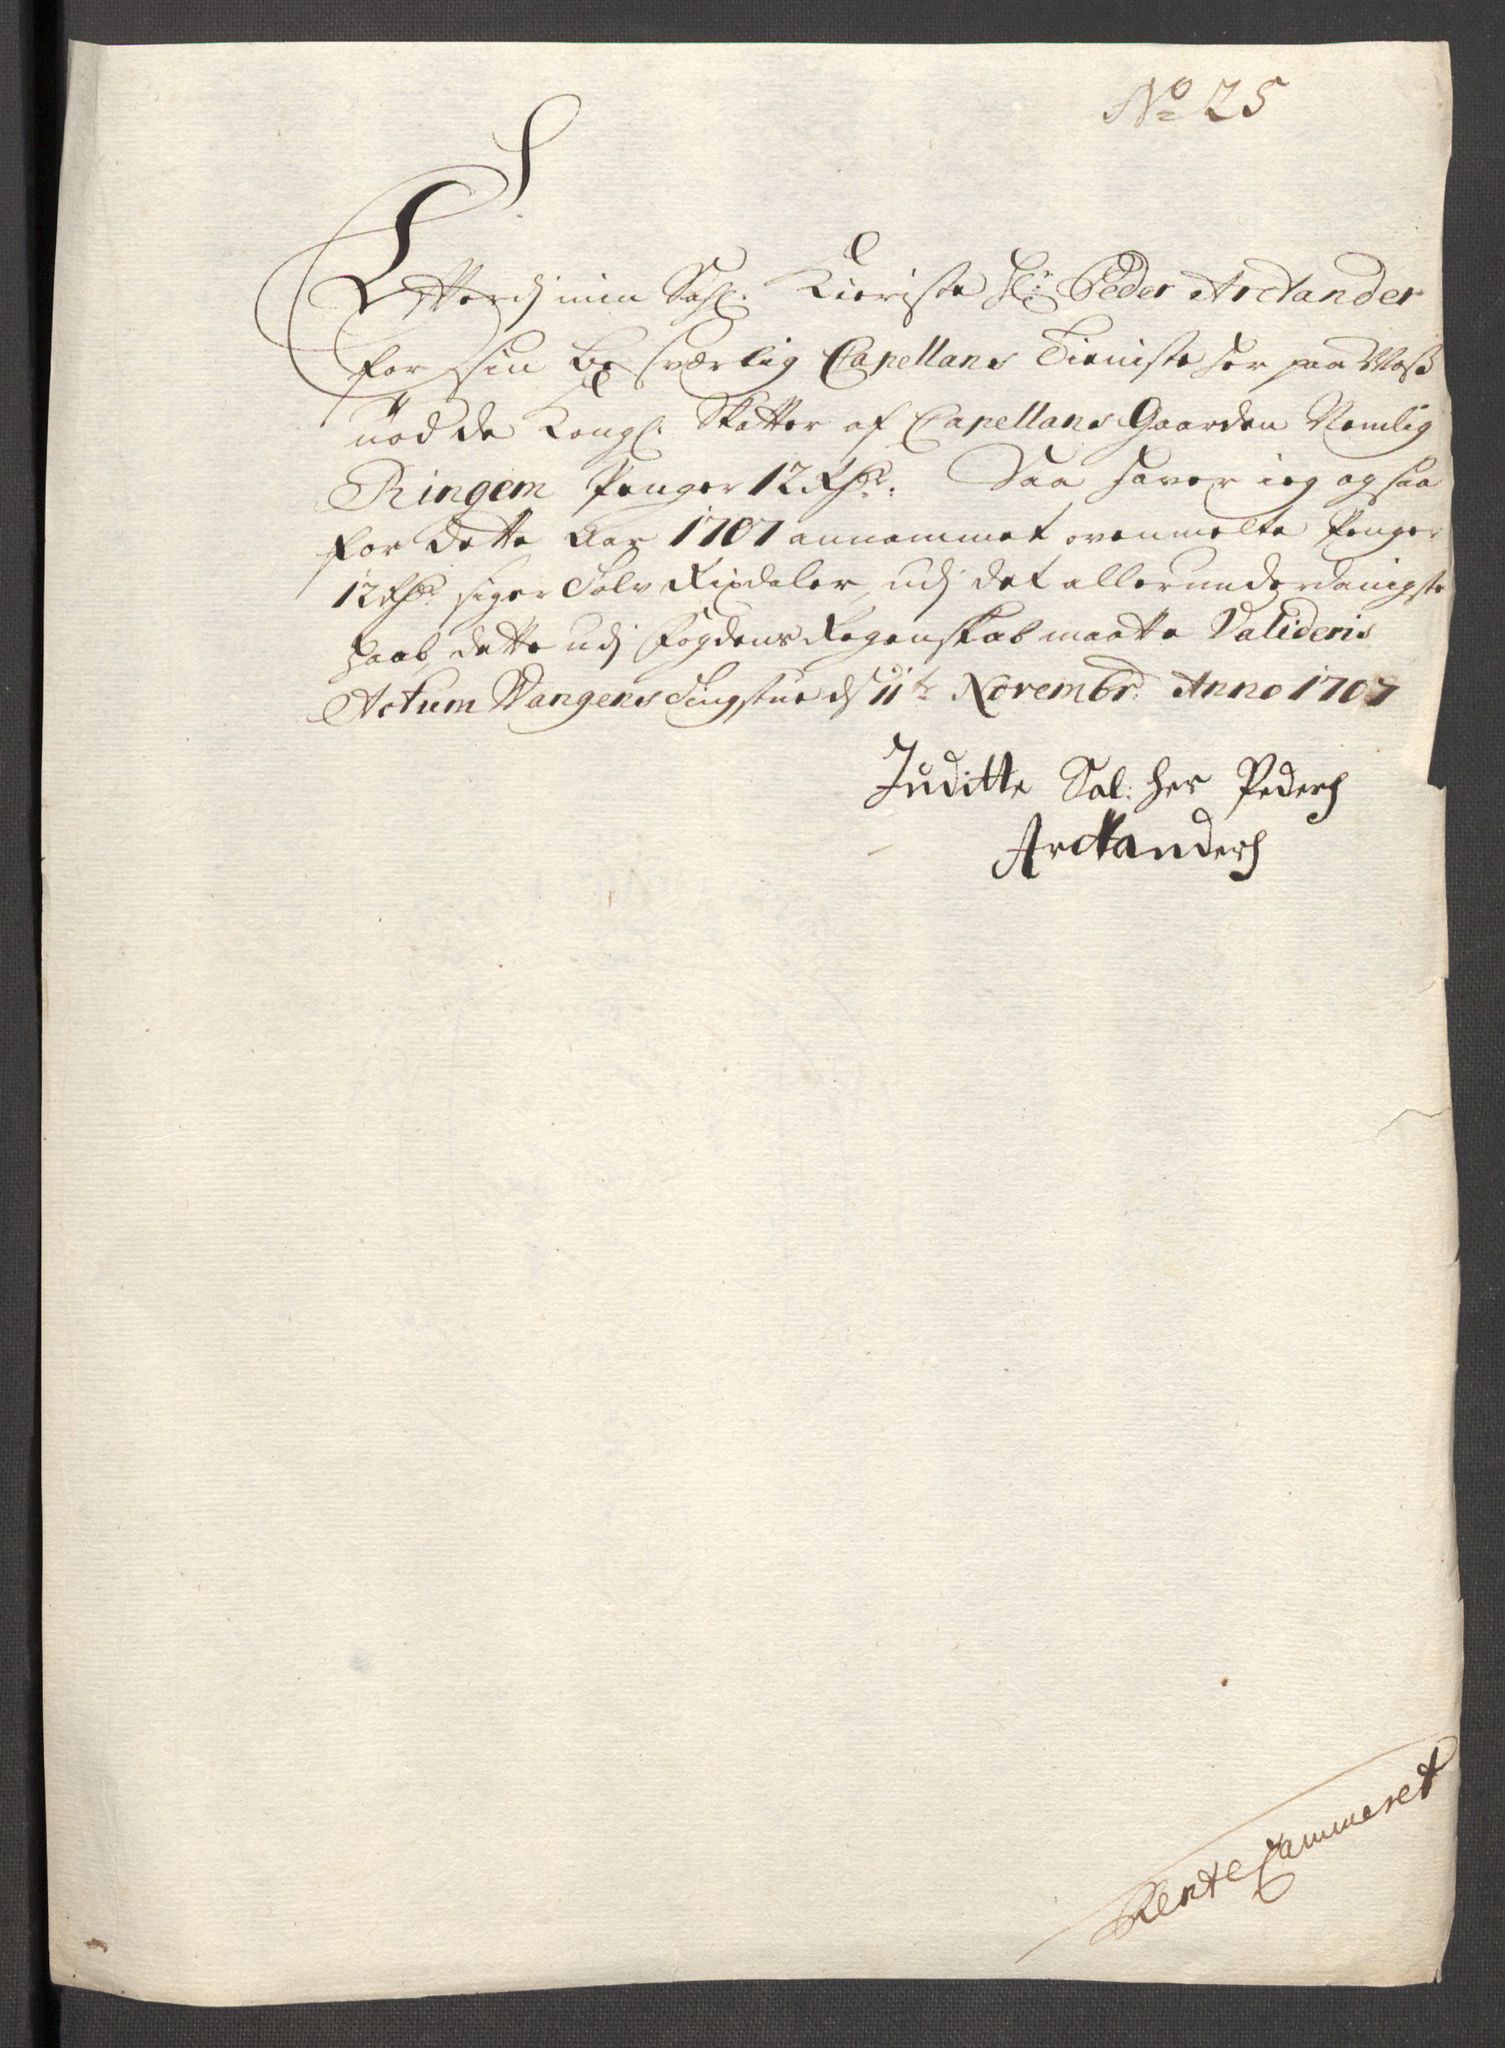 No 25
Efterdj min Sahl. Kieriste Hr: Peder Arctander
for sin besværlig Capellans Tieniste her paa Woss
nød de Kongl. Skatter af Capellans Gaarden Nemlig
Ringem Penger 12 Rhdr. Saa haver ieg ogsaa
for dette Aar 1707 annammet ovenmelte Penger
12 Rhdr siger Tolv Rixdaler, udj det allerunderdanigste
haab, dette udj Fogdens Regenskab maatte Valideris
Actum Wangens Tingstue d 11te Novembr. Anno 1707
Juditte Sal: her Peders
Arctanders
Rente Cammeret